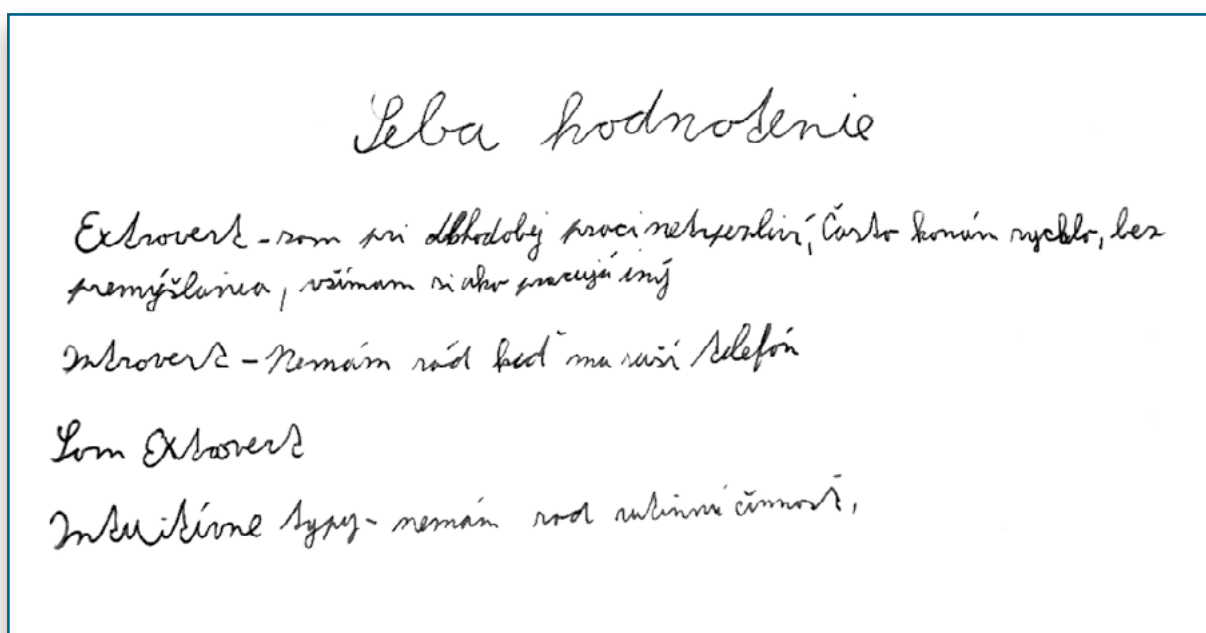 Seba hodnotenie
Extrovert - som pri dlhodobej praci netrpezliví, Často konám rychlo, bez
premýšlania, všímam si ako pracujú iný
Introvert - Nemám rád keď ma ruší telefón
Som Extrovert
Intuitívne typy - nemám rad rutinnú činnosť,